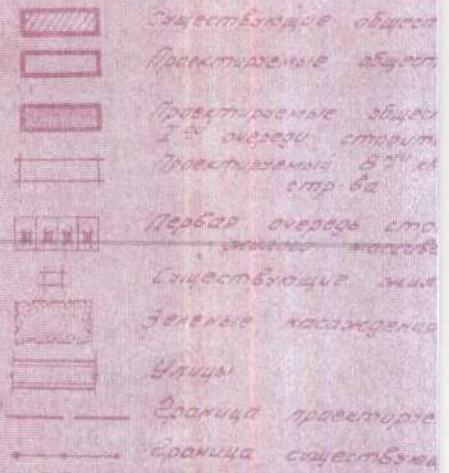 Существующие общест
Проектируемые общест
Проектируемые общест
I ой очереди строит
Проектируемый 8 ми кв
стр-ва
Первая очередь стр
жилого массива
Существующие жил
Зеленые насаждения
Улицы
Граница проектируе
Граница существую